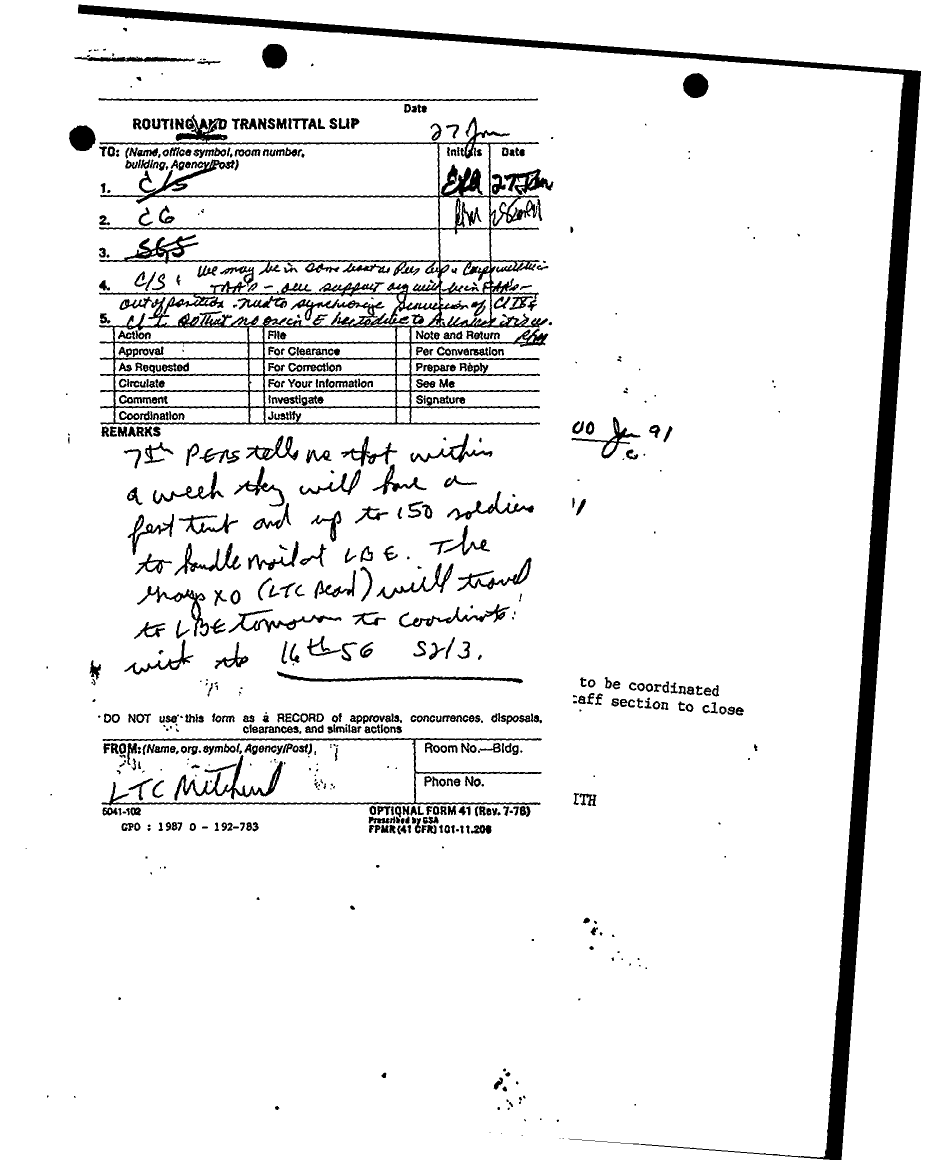 Date
ROUTING AND TRANSMITTAL SLIP
27 Jan
TO: (Name, office symbol, room number, building, Agency/Post)
Initials Date
1. C/S 27 Jan
2. CG
3. SGS
4. C/S: We may be in some
TAA's - our support org will be in
out of position. Need to synchronize
5. so that no one in E has to due to
Action File Note and Return
Approval For Clearance Per Conversation
As Requested For Correction Prepare Reply
Circulate For Your Information See Me
Comment Investigate Signature
Coordination Justify
REMARKS
7th PERS tells me that within
a week they will have a
fest tent and up to 150 soldiers
to handle mail at LBE. The
XO (LTC ) will travel
to LBE tomorrow to coordinate
with the 16th SG S2/3.
00 Jan 91
to be coordinated
aff section to close
ITH
DO NOT use this form as a RECORD of approvals, concurrences, disposals,
clearances, and similar actions
FROM: (Name, org. symbol, Agency/Post)
Room No.—Bldg.
LTC Mitchell
Phone No.
5041-102
OPTIONAL FORM 41 (Rev. 7-76)
Prescribed by GSA
GPO : 1987 O - 192-783
FPMR (41 CFR) 101-11.206